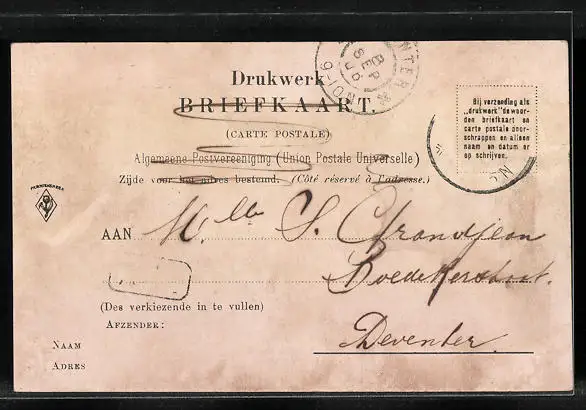 Drukwerk
BRIEFKAART.
(CARTE POSTALE)
Algemeene Postvereeniging (Union Postale Universelle)
Zijde voor het adres bestemd. (Côté réservé à l'adresse.)
Bij verzending als
„drukwerk" de woor-
den briefkaart en
carte postale door-
schrappen en alleen
naam en datum er
op schrijven.
AAN Mlle S. Grandjean
Deventer.
(Des verkiezende in te vullen)
AFZENDER:
NAAM
ADRES